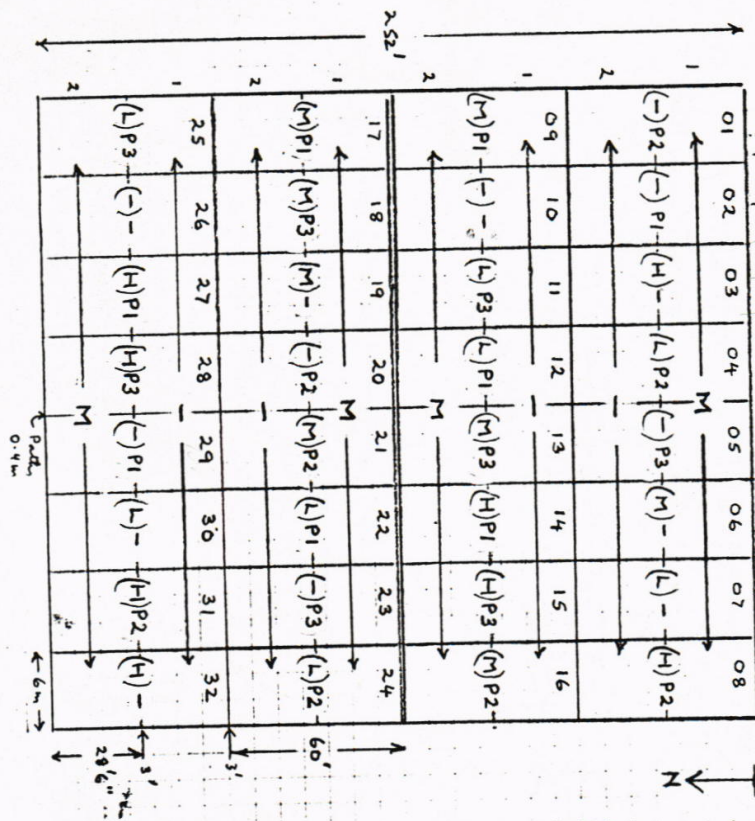 252'
1 2 1 2 1 2 1 2
01 02 03 04 05 06 07 08
(-)P2 (-)P1 (H)- (L)P2 (-)P3 (M)- (L)- (H)P2
M
I
09 10 11 12 13 14 15 16
(M)P1 (-)- (L)P3 (L)P1 (M)P3 (H)P1 (H)P3 (M)P2
I
M
17 18 19 20 21 22 23 24
(M)P1 (M)P3 (M)- (-)P2 (M)P2 (L)P1 (-)P3 (L)P2
M
I
25 26 27 28 29 30 31 32
(L)P3 (-)- (H)P1 (H)P3 (-)P1 (L)- (H)P2 (H)-
I
M
Paths
0.4m
6m
28'6"
3'
3'
60'
N